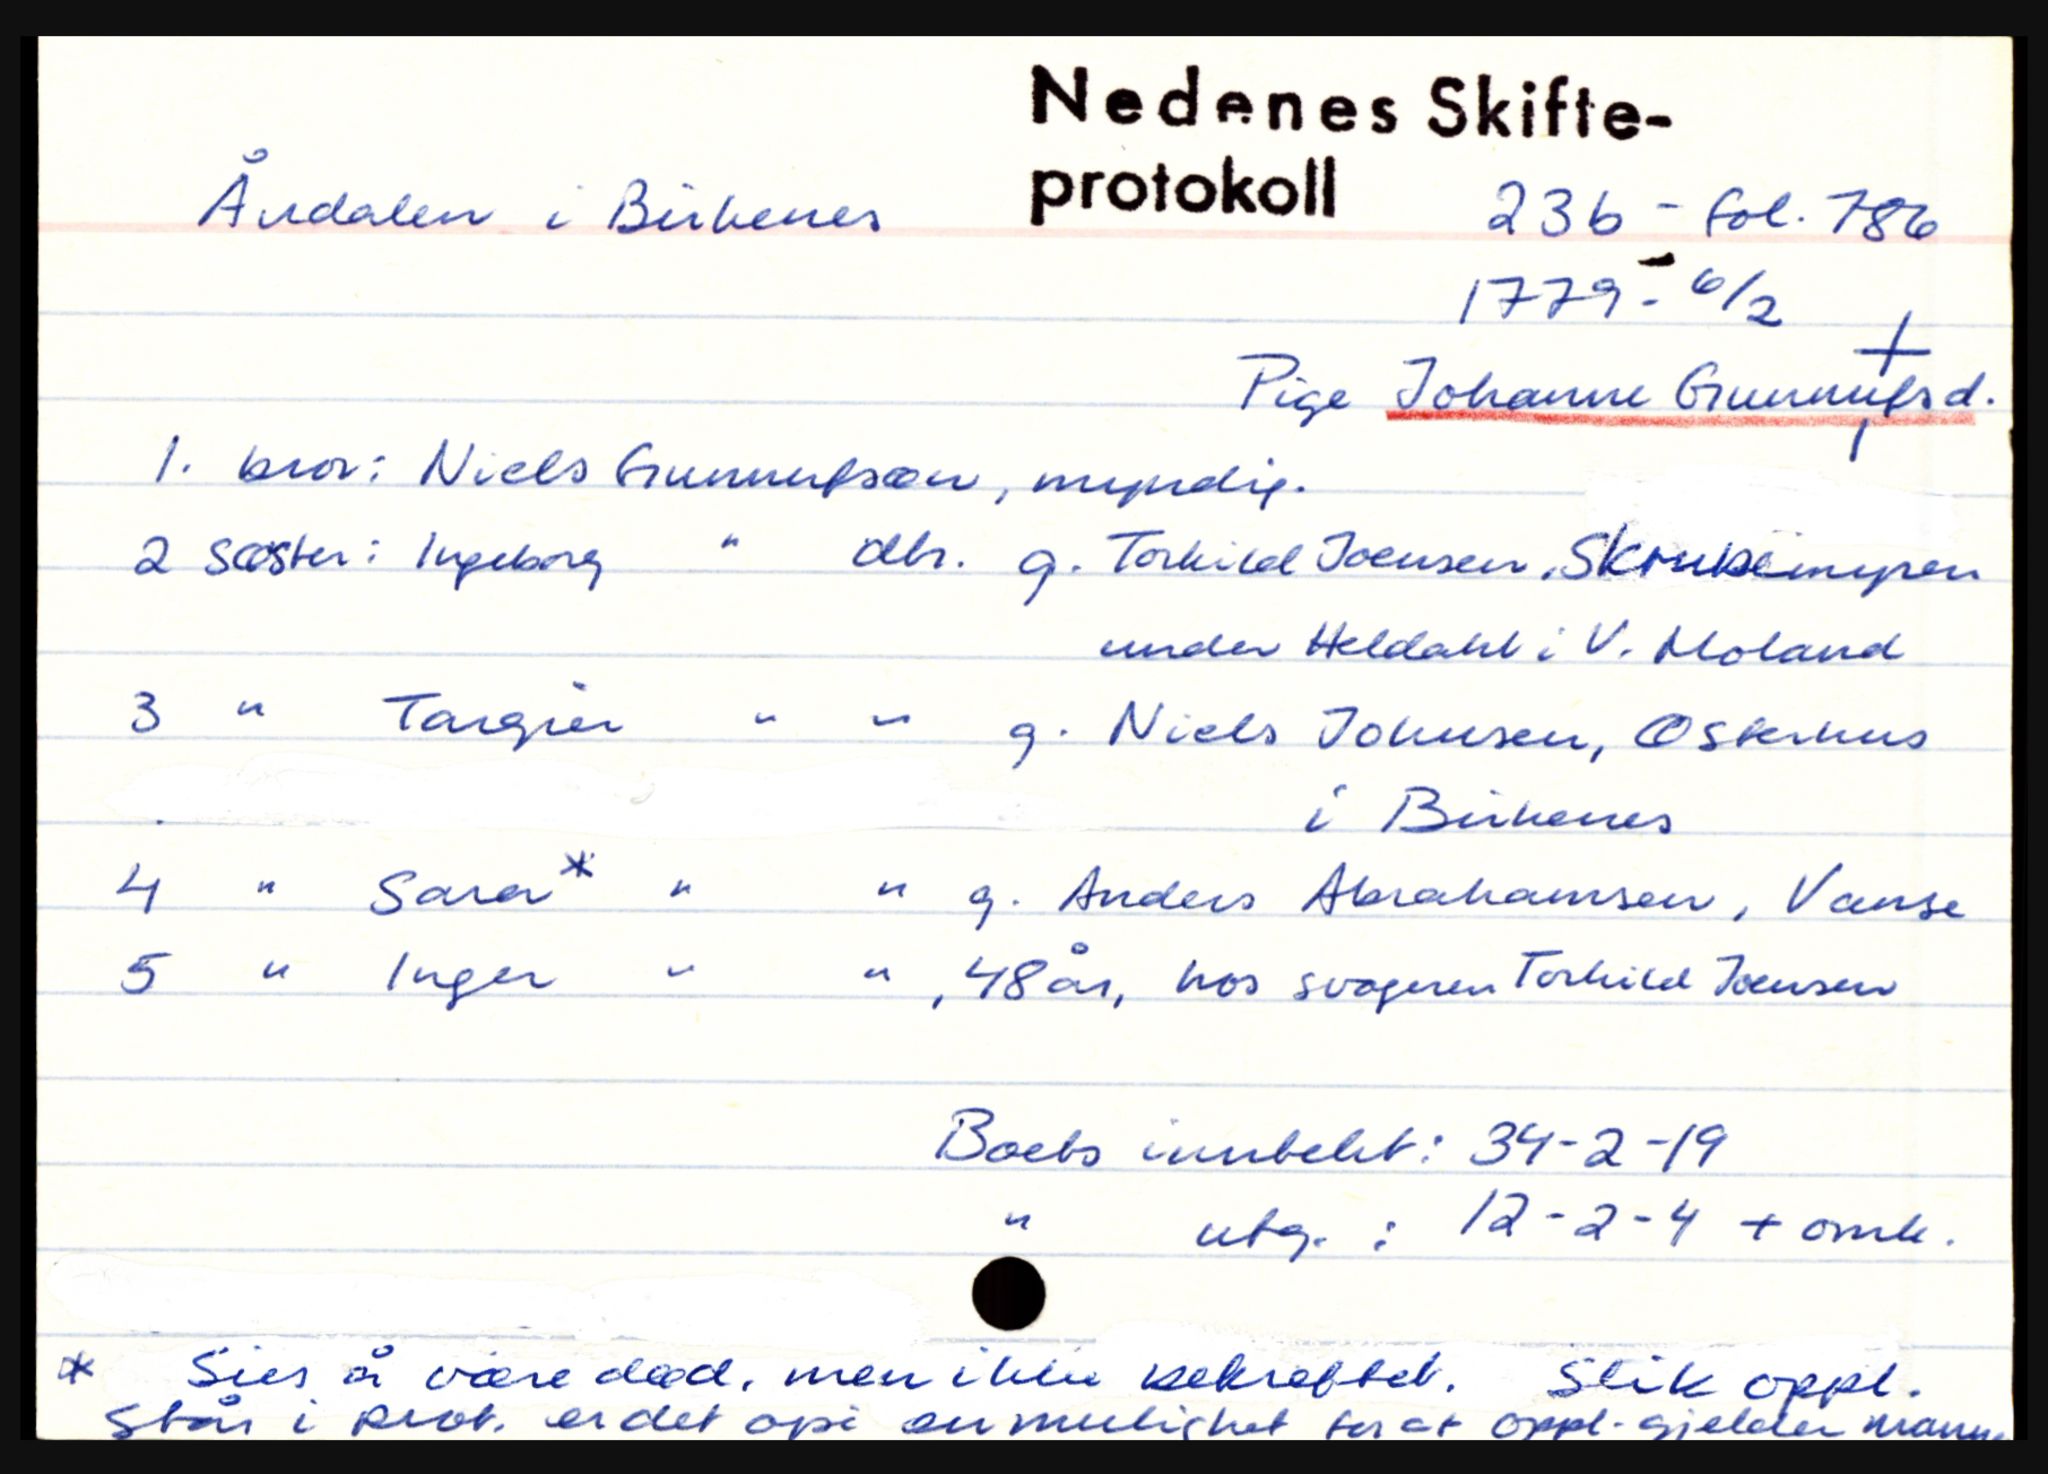 Nedenes Skifte-
protokoll
Åndalen i Birkenes 23b - fol. 786
1779 - 6/2
+
Pige Johanne Gunnufsd.
1. bror: Niels Gunnufsøn, myndig.
2 søster: Ingeborg " dtr. g. Torkild Joensen, Skrubemyren
under Heldahl i V. Moland
3 " Targier " " g. Niels Johnsen, Osterhus
i Birkenes
4 " Sara* " " g. Anders Abrahamsen, Vanse
5 " Inger " " , 48 år, hos svogeren Torkild Joensen
Boets inntekt: 34-2-19
" utg. : 12-2-4 + omk.
* Sies å være død, men ikke bekreftet. Slik oppl.
står i prot. er det opi en mulighet for at oppl. gjelder mann